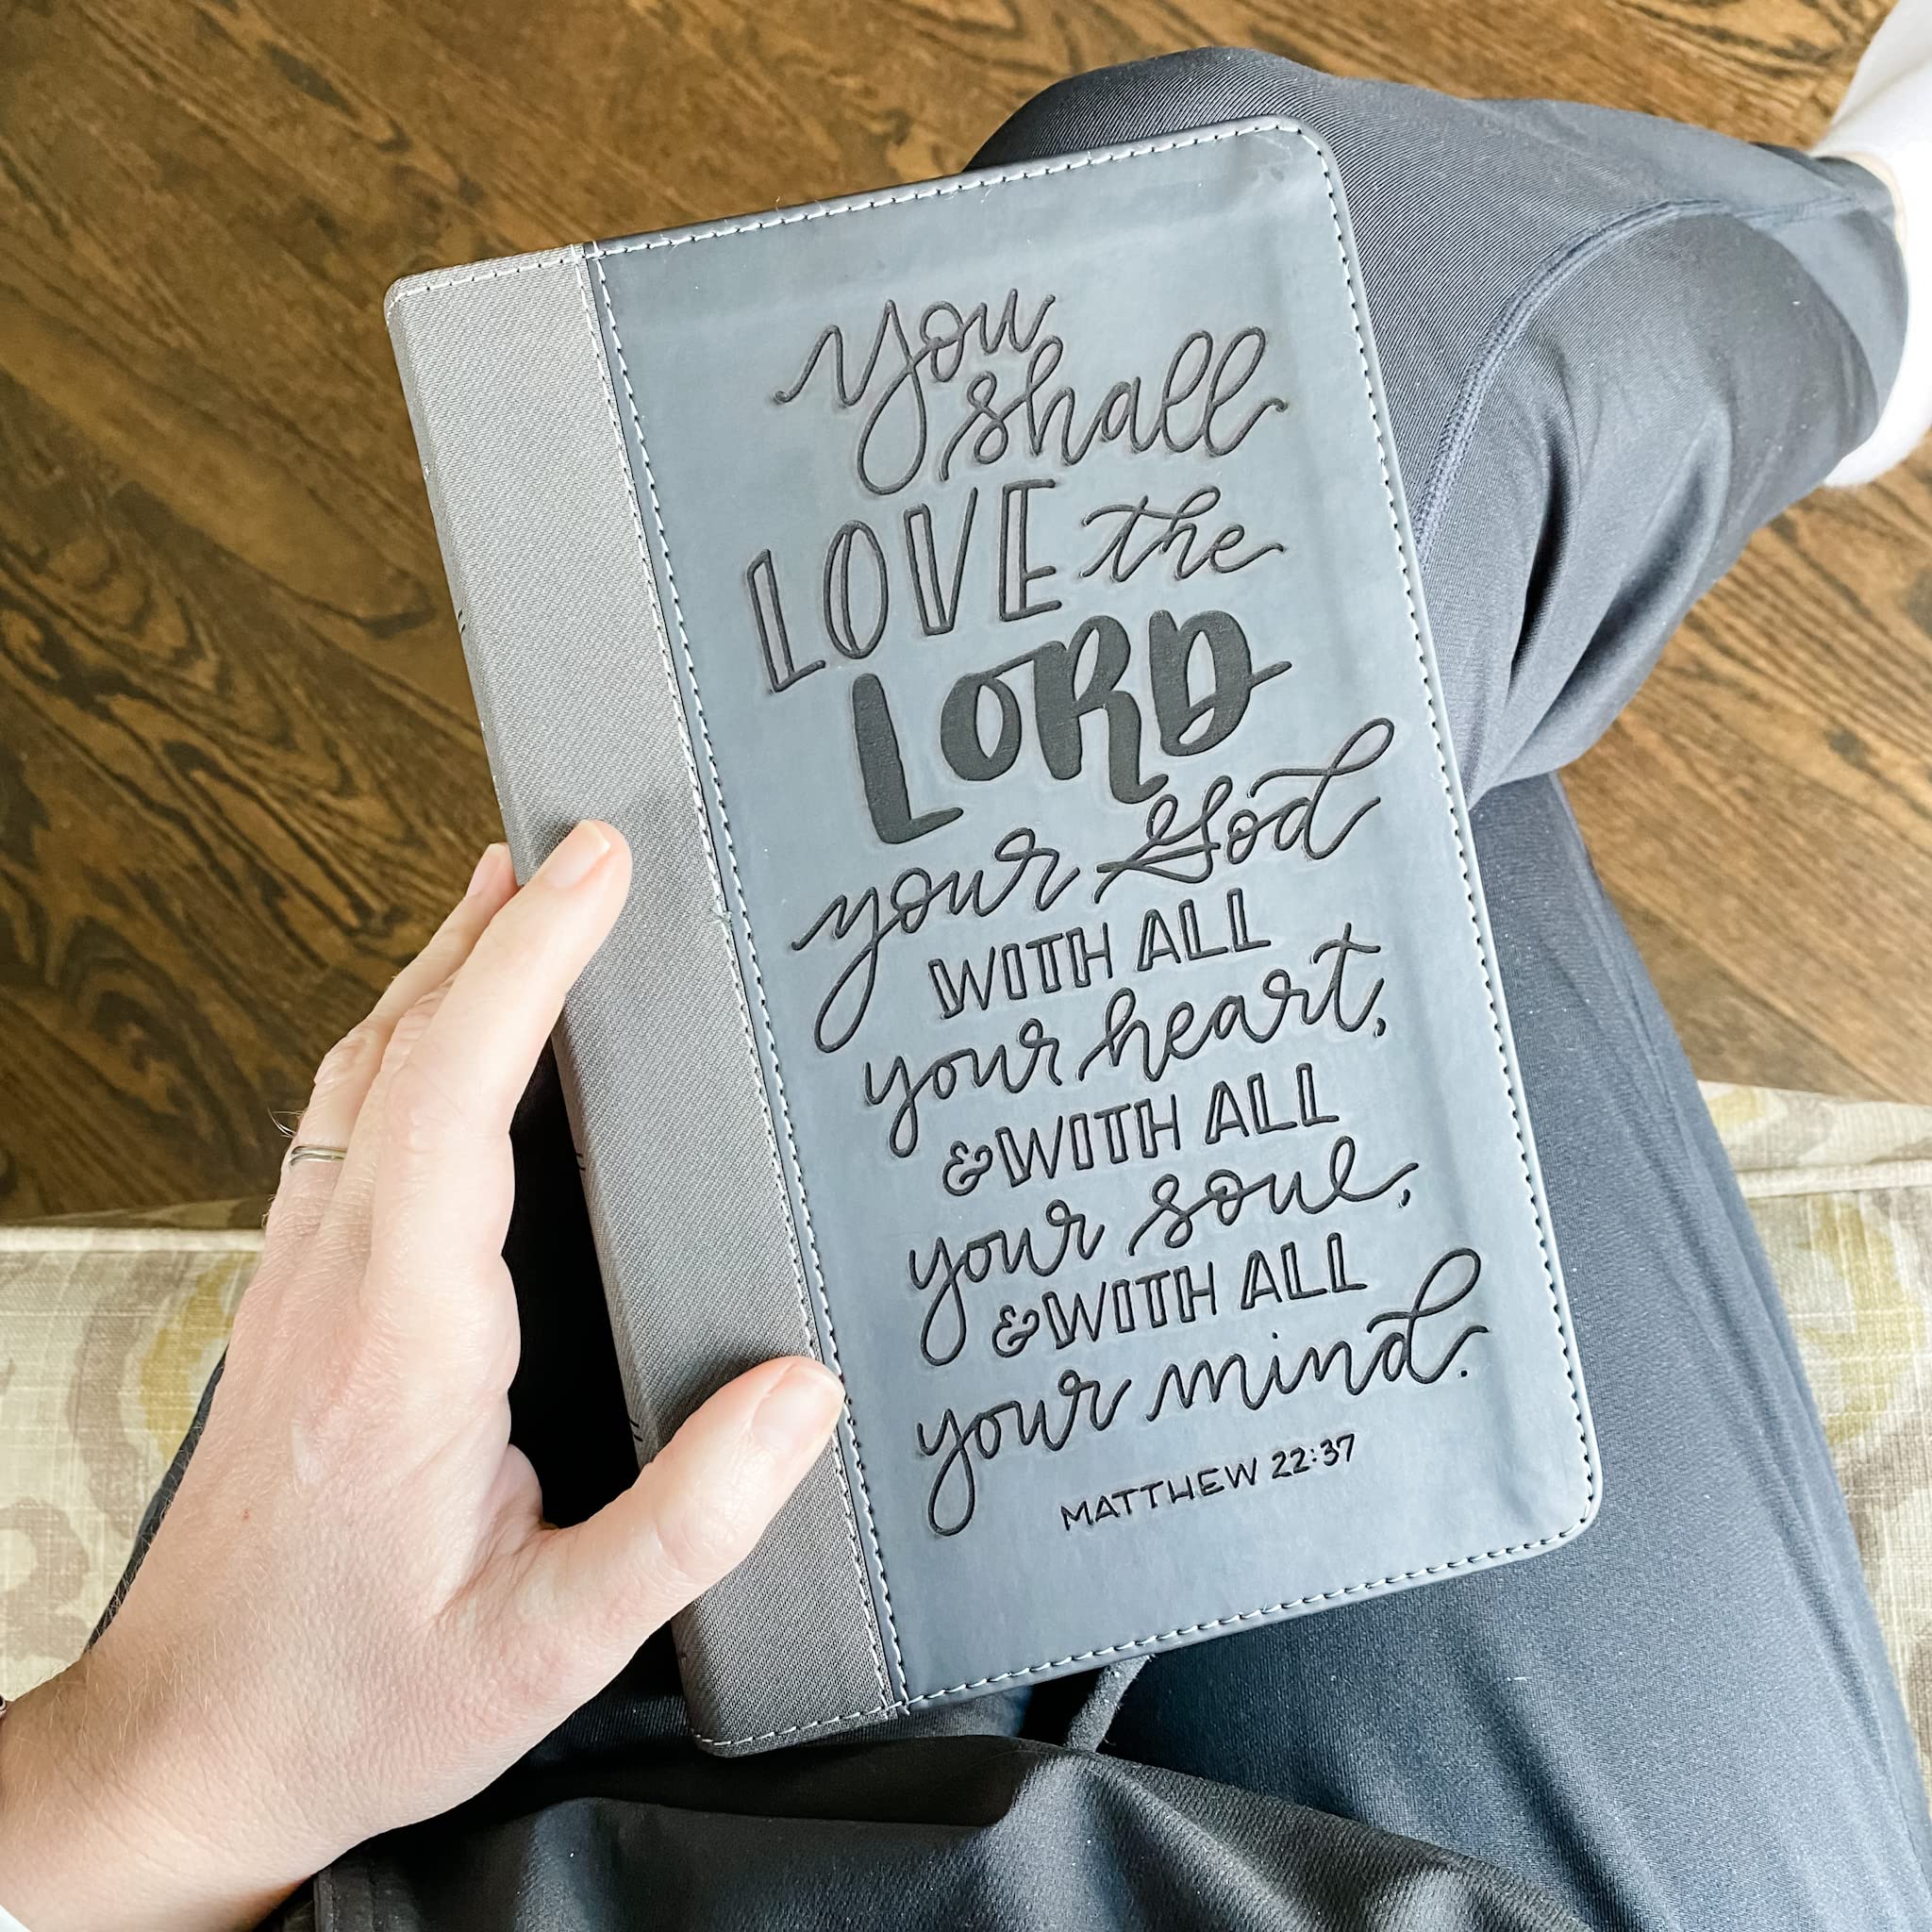 you
shall
LOVE the
LORD
your God
WITH ALL
your heart,
& WITH ALL
your soul,
& WITH ALL
your mind.
MATTHEW 22:37